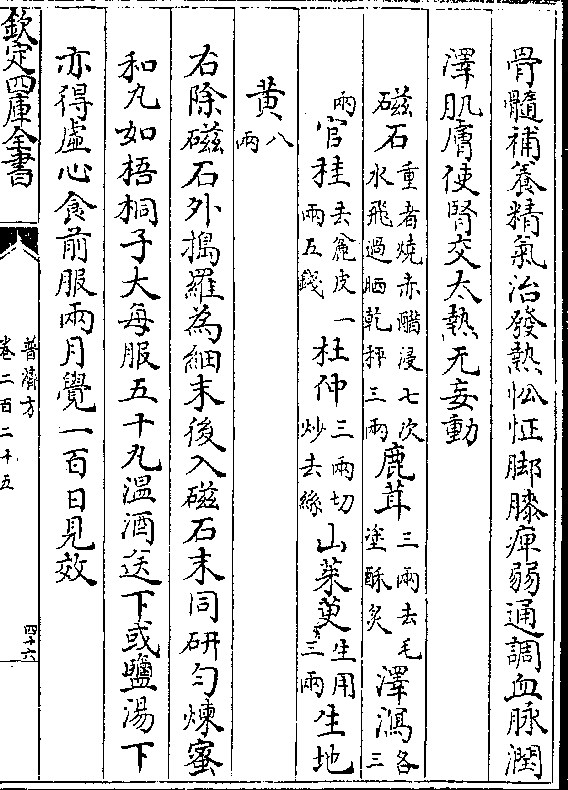 骨髓補養精氣治發熱忪怔脚膝痺弱通調血脉潤
澤肌膚使腎交太熱无妄動
磁石重者燒赤醋浸七次水飛過晒乾秤三兩鹿茸三兩去毛塗酥炙澤瀉各三
兩官桂去麄皮一兩五錢杜仲三兩切炒去絲山茱萸生用三兩生地
黄八兩
右除磁石外搗羅為細末後入磁石末同研勻煉蜜
和丸如梧桐子大每服五十丸温酒送下或鹽湯下
亦得虚心食前服兩月覺一百日見效
欽定四庫全書
普濟方
卷二百二十五
四十六